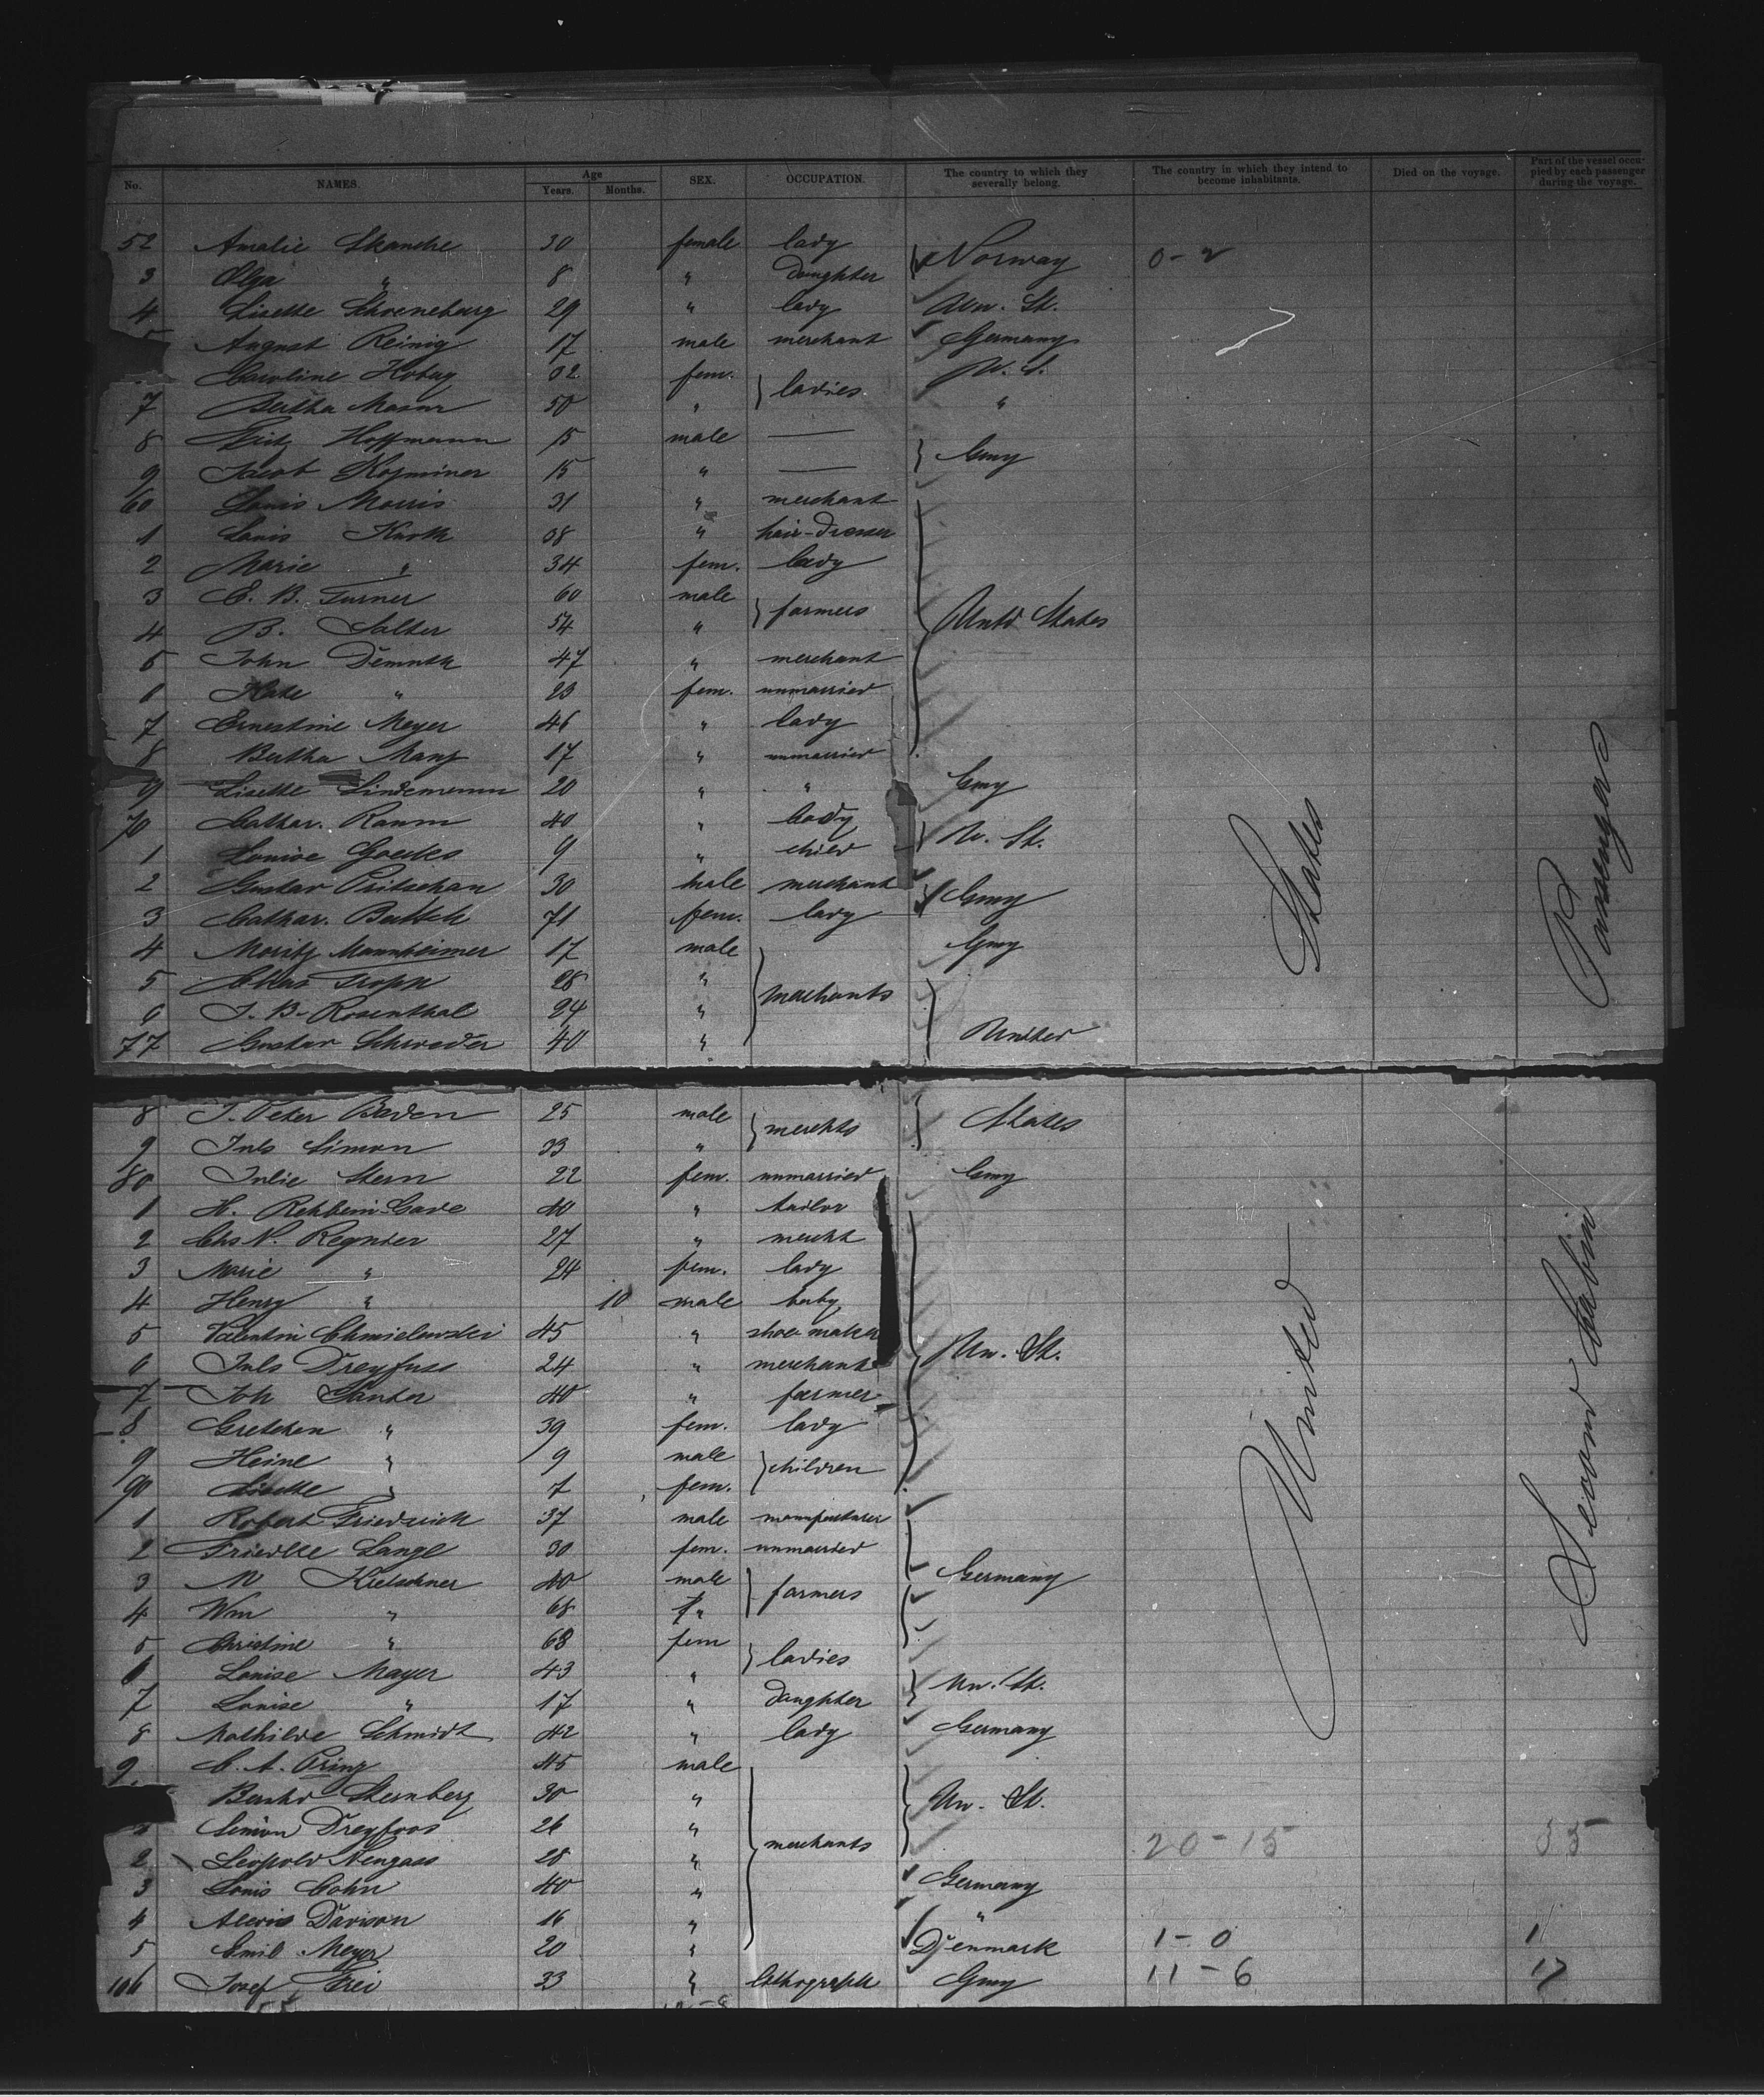 No. NAMES. Age Years. Months. SEX. OCCUPATION. The country to which they severally belong. The country in which they intend to become inhabitants. Died on the voyage. Part of the vessel occupied by each passenger during the voyage.
52 Amalie Skandre 30 female lady Norway 0-2
3 Olga " 8 " daughter
4 Lisette Schoeneburg 29 " lady Un. St.
5 August Reinig 17 male merchant Germany
Caroline 32 fem. ladies U. S.
7 Bertha 50 " "
8 Fritz Hoffmann 15 male —
9 Jacob 15 " — Gmy
60 Louis Morris 31 " merchant
1 Louis Kurth 38 " hair-dresser
2 Marie " 34 fem. lady
3 C. B. Turner 60 male farmers
4 B. Salter 54 " Untd States
5 John Demuth 47 " merchant
6 Kate " 23 fem. unmarried
7 Ernestine Meyer 46 " lady
8 Bertha Manz 17 " unmarried
9 Lisette Lindemann 20 " " Gmy
70 Cathar. Raum 40 " lady U. St.
1 Louise Goedes 9 " child
2 Gustav Pritschau 30 male merchant Gmy
3 Cathar. 71 fem. lady
4 Moritz Mannheimer 17 male Gmy
5 Chas 28 " merchants
6 J. B. Rosenthal 24 "
77 Gustav Schroeder 40 " United
States
Passengers
8 J. Peter Baden 25 male merchts States
9 Juls Simon 33 "
80 Julie Stern 22 fem. unmarried Gmy
1 H. 40 " tailor
2 Chs N. Regnier 27 " mercht
3 Marie " 24 fem. lady
4 Henry " 10 male baby
5 Valentin Chmielewski 45 " shoe maker
6 Juls Dreyfuss 24 " merchant Un. St.
7 Joh Santer 40 " farmer
8 Gretchen " 39 fem. lady
9 Heine " 9 male children
90 Lisette " 7 fem.
1 Robert Friedrich 37 male manufacturer
2 Friedke Lange 30 fem. unmarried
3 M Kretschner 40 male farmers Germany
4 Wm " 68 "
5 Christine " 68 fem ladies
6 Louise Mayer 43 " Un. St.
7 Louise " 17 " daughter
8 Mathilde Schmidt 42 " lady Germany
9 C. A. Prinz 45 male
Bernhd Sternberg 30 " Un. St.
1 Simon Dreyfoos 26 " merchants 20-15 35
2 Leopold Neugass 28 "
3 Louis Cohn 40 " Germany
4 Davison 16 " "
5 Emil Meyer 20 " Denmark 1-0 1
106 Josef Frei 33 " lithograph Gmy 11-6 17
United
Second Cabin